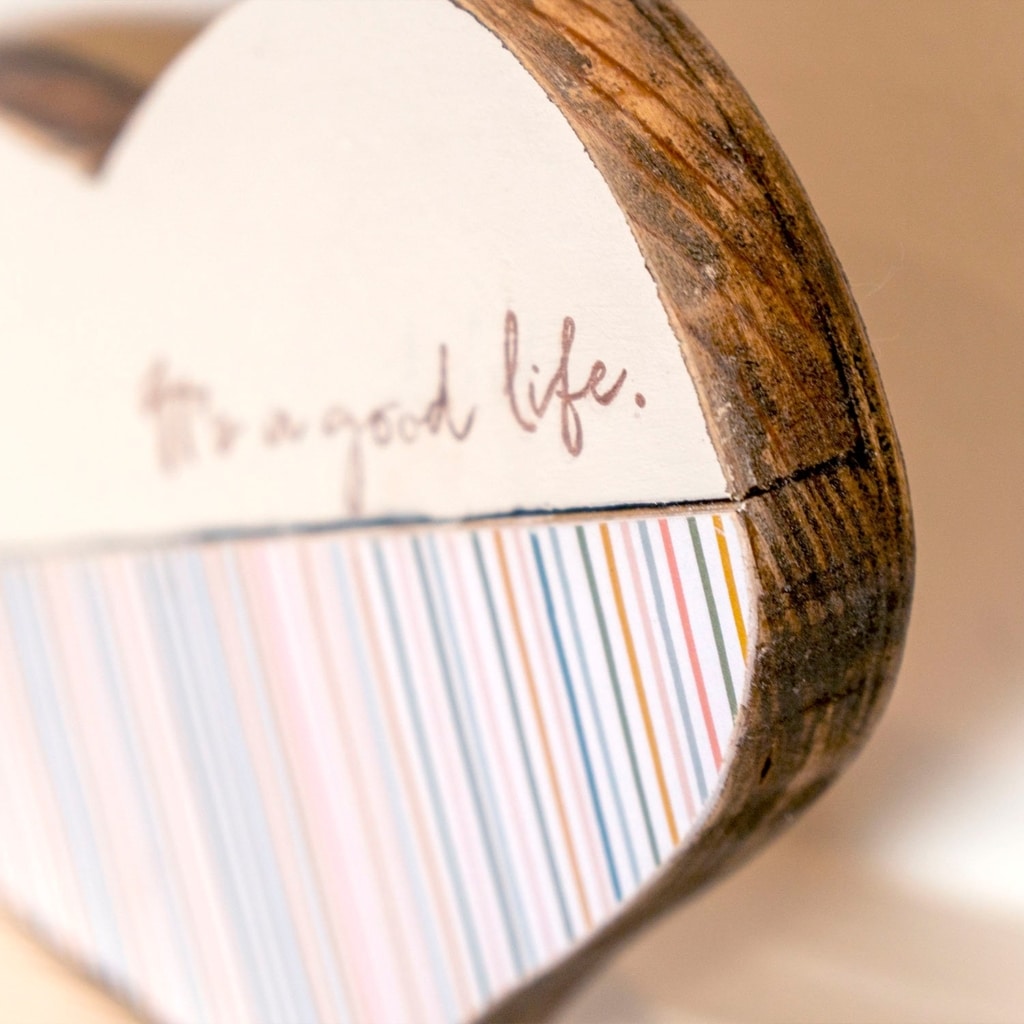 It's a good life.